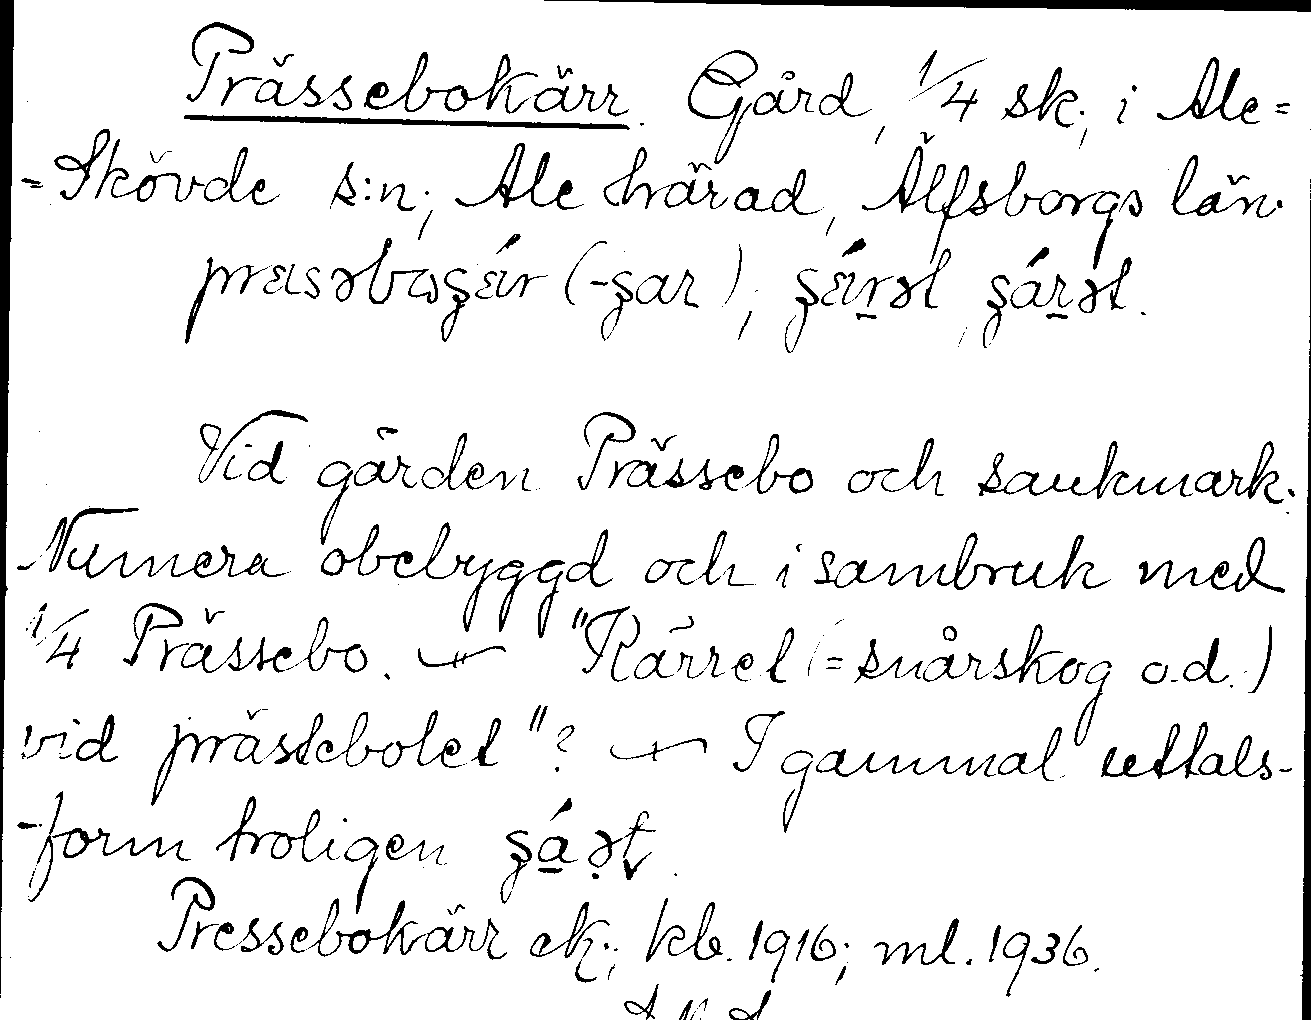 Prässebokärr. Gård, 1/4 sk., i Ale=
=Skövde s:n, Ale härad, Älfsborgs län.
(-ʂar),
Vid gården Prässebo och sankmark.
Numera obebyggd och i sambruk med
1/4 Prässebo. — "Kärret (= snårskog o.d.)
vid prästebolet"? — I gammal uttals-
-form troligen
Pressebokärr ek.; kb. 1916; ml. 1936.